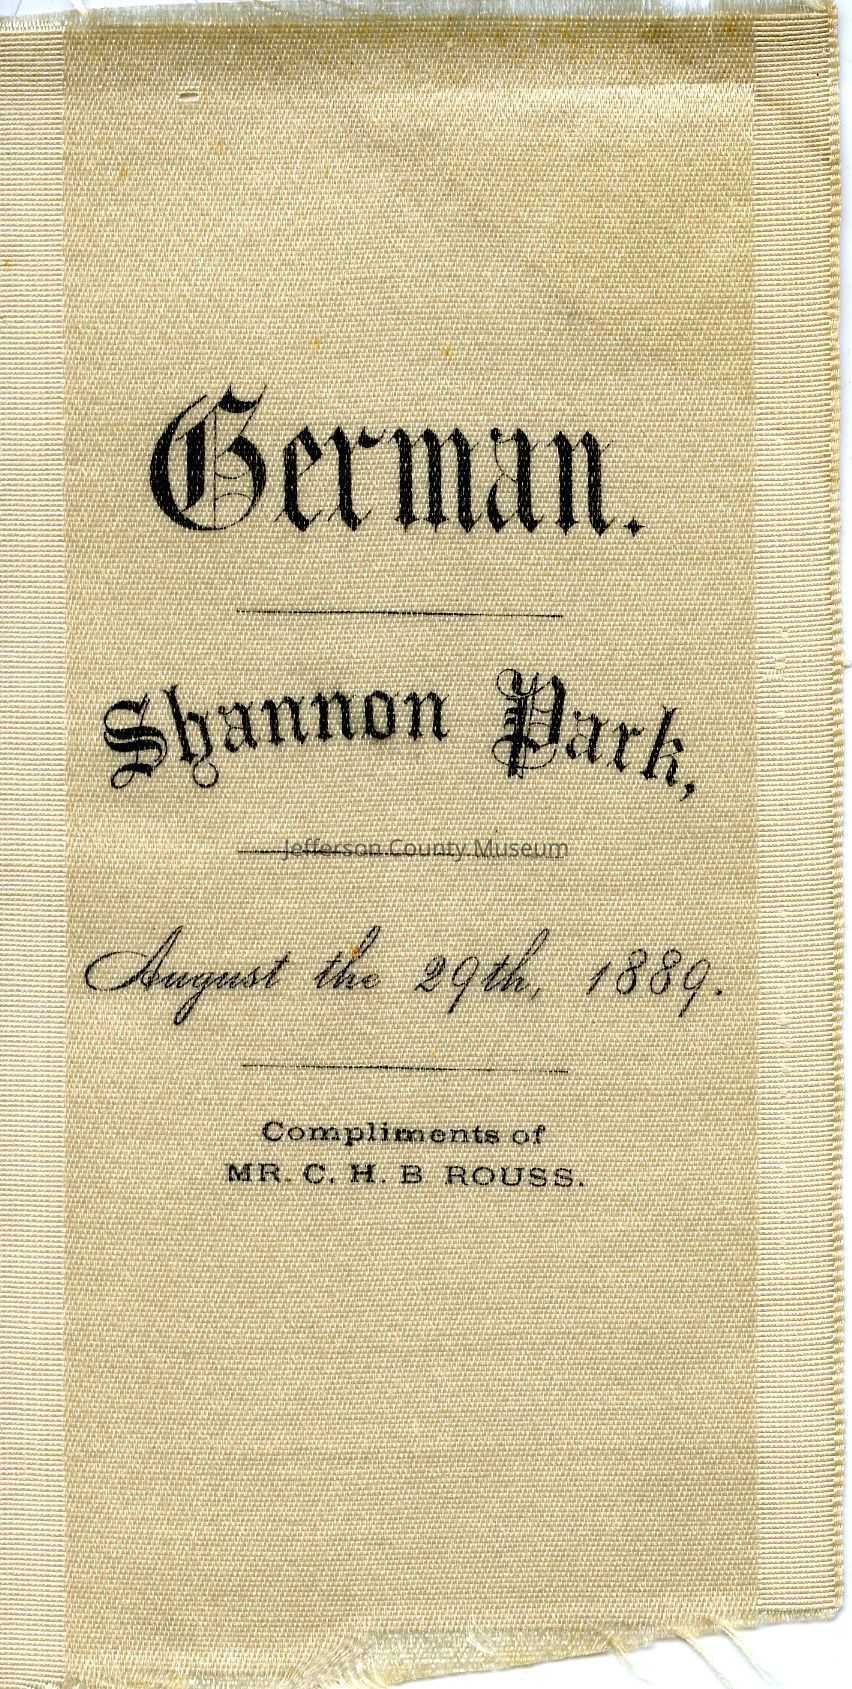 German.
Shannon Park,
Jefferson County Museum
August the 29th, 1889.
Compliments of
MR. C. H. B ROUSS.